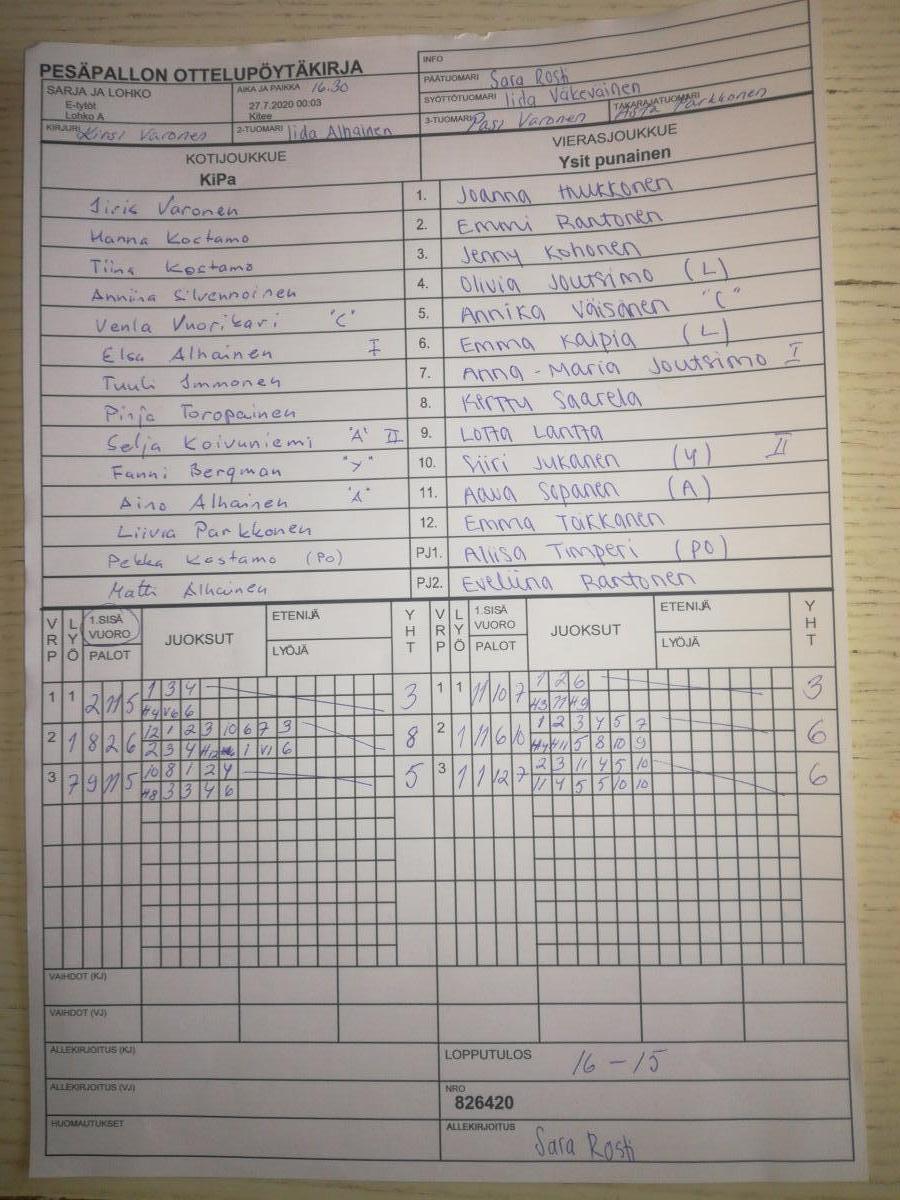 PESÄPALLON OTTELUPÖYTÄKIRJA
INFO
SARJA JA LOHKO
E-tytöt
Lohko A
AIKA JA PAIKKA 16.30
27.7.2020 00:03
Kitee
PÄÄTUOMARI Sara Rosti
SYÖTTÖTUOMARI Iida Väkeväinen
KIRJURI Kirsi Varonen 2-TUOMARI Iida Alhainen 3-TUOMARI Pasi Varonen TAKARAJATUOMARI Parkkonen
KOTIJOUKKUE VIERASJOUKKUE
KiPa Ysit punainen
Iiris Varonen 1. Joanna Hukkonen
Hanna Kostamo 2. Emmi Rantonen
Tiina Kostamo 3. Jenny Kohonen
Anniina Silvennoinen 4. Olivia Joutsimo (L)
Venla Vuorikari "C" 5. Annika Väisänen "C"
Elsa Alhainen I 6. Emma Kaipia (L)
Tuuli Immonen 7. Anna-Maria Joutsimo I
Pinja Toropainen 8. Kerttu Saarela
Selja Koivuniemi "A" II 9. Lotta Lantta
Fanni Bergman "Y" 10. Siiri Jukanen (Y) II
Aino Alhainen "A" 11. Aava Sopanen (A)
Liivia Parkkonen 12. Emma Takkanen
Pekka Kostamo (PO) PJ1. Aliisa Timperi (PO)
Matti Alhainen PJ2. Eveliina Rantonen
VRP LYÖ 1.SISÄ VUORO PALOT JUOKSUT ETENIJÄ LYÖJÄ YHT VRP LYÖ 1.SISÄ VUORO PALOT JUOKSUT ETENIJÄ LYÖJÄ YHT
1 1 2 11 5 1 3 4 3 1 1 11 10 7 1 2 6 3
H4 V6 6 H3 11 H9
2 1 8 2 6 12 1 2 3 10 6 7 3 8 2 1 11 6 10 1 2 3 4 5 7 6
2 3 4 H12 1 V1 6 H4 H11 5 8 10 9
3 7 9 11 5 10 8 1 2 4 5 3 1 1 12 7 2 3 11 4 5 10 6
H8 3 3 4 6 11 4 5 5 10 10
VAIHDOT (KJ)
VAIHDOT (VJ)
ALLEKIRJOITUS (KJ)
LOPPUTULOS 16-15
ALLEKIRJOITUS (VJ)
NRO
826420
HUOMAUTUKSET
ALLEKIRJOITUS
Sara Rosti